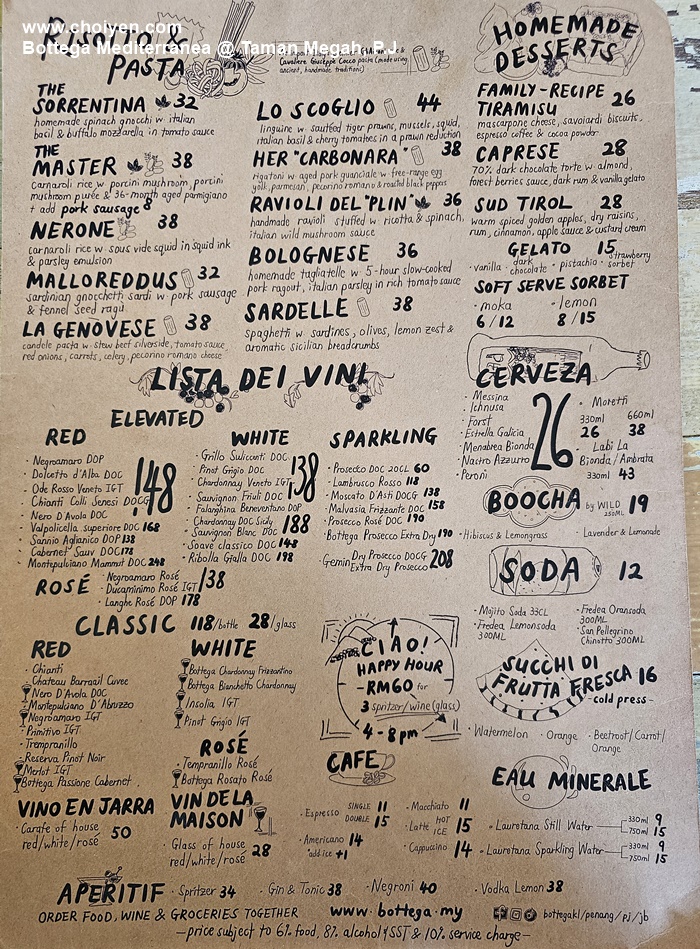 www.choiyen.com
Bottega Mediterranea @ Taman Megah, PJ
Risotto &
PASTA
Cavaliere Giuseppe Cocco pasta (made using
ancient, handmade traditions)
THE
SORRENTINA 32
homemade spinach gnocchi w italian
basil & buffalo mozzarella in tomato sauce
THE
MASTER 38
carnaroli rice w porcini mushroom, porcini
mushroom purée & 36-month aged parmigiano
+ add pork sausage 8
NERONE 38
carnaroli rice w sous vide squid in squid ink
& parsley emulsion
MALLOREDDUS 32
sardinian gnocchetti sardi w pork sausage
& fennel seed ragù
LA GENOVESE 38
candele pasta w stew beef silverside, tomato sauce
red onions, carrots, celery, pecorino romano cheese
LO SCOGLIO 44
linguine w sautéed tiger prawns, mussels, squid,
italian basil & cherry tomatoes in a prawn reduction
HER "CARBONARA" 38
rigatoni w aged pork guanciale w free-range egg
yolk, parmesan, pecorino romano & roasted black peppers
RAVIOLI DEL "PLIN" 36
handmade ravioli stuffed w ricotta & spinach,
italian wild mushroom sauce
BOLOGNESE 36
homemade tagliatelle w 5-hour slow-cooked
pork ragout, italian parsley in rich tomato sauce
SARDELLE 38
spaghetti w sardines, olives, lemon zest &
aromatic sicilian breadcrumbs
HOMEMADE
DESSERTS
FAMILY-RECIPE
TIRAMISU 26
mascarpone cheese, savoiardi biscuits,
espresso coffee & cocoa powder
CAPRESE 28
70% dark chocolate torte w almond,
forest berries sauce, dark rum & vanilla gelato
SUD TIROL 28
warm spiced golden apples, dry raisins,
rum, cinnamon, apple sauce & custard cream
GELATO 15
· vanilla · dark chocolate · pistachio · strawberry sorbet
SOFT SERVE SORBET
· moka · lemon
6/12 8/15
LISTA DEI VINI
ELEVATED
RED
· Negroamaro DOP
· Dolcetto d'Alba DOC
· Ode Rosso Veneto IGT
· Chianti Colli Senesi DOCG
· Nero D'Avola DOC
148
· Valpolicella superiore DOC 168
· Sannio Aglianico DOP 138
· Cabernet Sauv DOC 178
· Montepulciano Mammut DOC 248
WHITE
· Grillo Sulicenti DOC
· Pinot Grigio DOC
· Chardonnay Veneto IGT
· Sauvignon Friuli DOC
· Falanghina Beneventano DOP
138
· Chardonnay DOC Sicily
· Sauvignon Blanc DOC
188
· Soave classico DOC 148
· Ribolla Gialla DOC 198
SPARKLING
· Prosecco DOC 20CL 60
· Lambrusco Rosso 118
· Moscato D'Asti DOCG 138
· Malvasia Frizzante DOC 158
· Prosecco Rosé DOC 190
· Bottega Prosecco Extra Dry 190
· Gemin Dry Prosecco DOCG
Extra Dry Prosecco 208
ROSÉ
· Negroamaro Rosé
· Ducaminimo Rosé IGT
138
· Langhe Rosé DOP 178
CERVEZA
· Messina
· Ichnusa
· Forst
· Estrella Galicia
· Menabrea Bionda
· Nastro Azzurro
· Peroni
26
· Moretti
330ml 660ml
26 38
· Labi La
Bionda / Ambrata
330ml 43
BOOCHA by WILD 250ML 19
· Hibiscus & Lemongrass · Lavender & Lemonade
SODA 12
· Mojito Soda 33CL
· Fredea Lemonsoda
300ML
· Fredea Oransoda
300ML
· San Pellegrino
Chinotto 300ML
CLASSIC 118/bottle 28/glass
RED
· Chianti
· Chateau Barrail Cuvee
Nero D'Avola DOC
· Montepulciano D'Abruzzo
Negroamaro IGT
· Primitivo IGT
· Tempranillo
· Reserva Pinot Noir
Merlot IGT
Bottega Passione Cabernet
WHITE
Bottega Chardonnay Frizzantino
Bottega Bianchetto Chardonnay
Insolia IGT
Pinot Grigio IGT
ROSÉ
· Tempranillo Rosé
Bottega Rosato Rosé
CIAO!
HAPPY HOUR
-RM60 for
3 spritzer/wine (glass)
4-8pm
SUCCHI DI
FRUTTA FRESCA 16
-cold press-
· Watermelon · Orange · Beetroot/Carrot/
Orange
VINO EN JARRA
· Carafe of house
red/white/rosé 50
VIN DE LA
MAISON
· Glass of house
red/white/rosé 28
CAFE
· Espresso SINGLE 11
DOUBLE 15
· Americano 14
"add ice" +1
· Macchiato 11
· Latte HOT ICE 15
· Cappuccino 14
EAU MINERALE
· Lauretana Still Water 330ml 9
750ml 15
· Lauretana Sparkling Water 330ml 9
750ml 15
APERITIF · Spritzer 34 · Gin & Tonic 38 · Negroni 40 · Vodka Lemon 38
ORDER FOOD, WINE & GROCERIES TOGETHER www.bottega.my bottegakl/penang/pj/jb
-price subject to 6% food, 8% alcohol SST & 10% service charge-